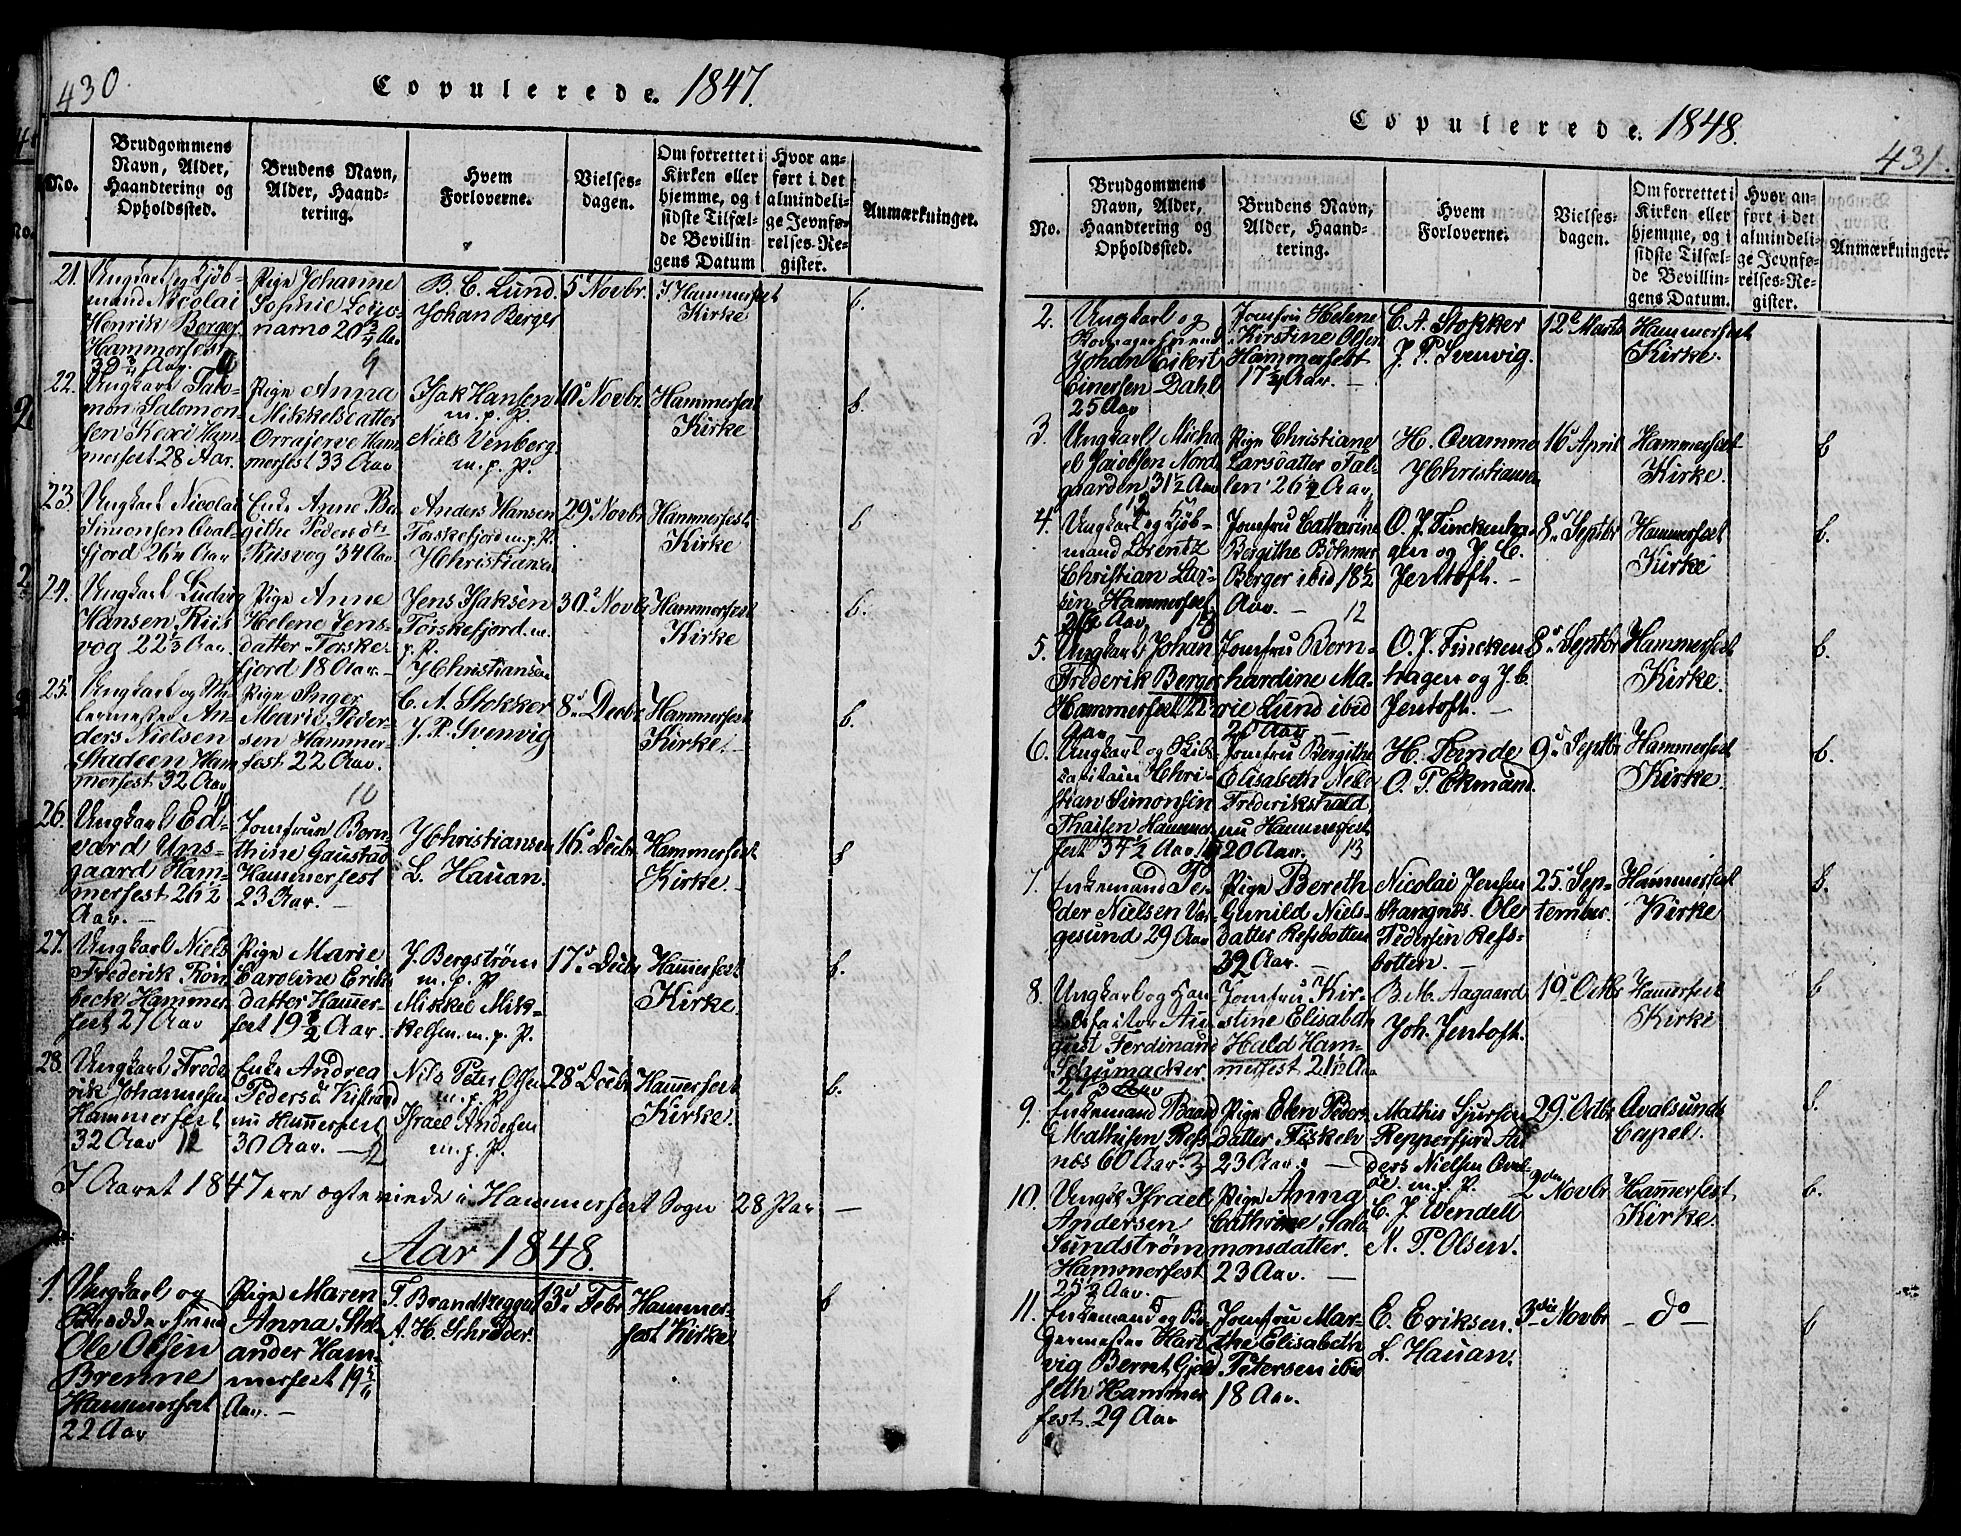 430.
Copulerede. 1847.
No.
Brudgommens
Navn, Alder,
Haandtering og
Opholdssted.
Brudens Navn,
Alder, Haand-
tering.
Hvem
Forloverne.
Vielses-
dagen.
Om forrettet i
Kirken eller
hjemme, og i
sidste Tilfæl-
de Bevillin-
gens Datum
Hvor an-
ført i det
almindeli-
ge Jevnfø-
relses-Re-
gister.
Anmærkninger.
21.
Ungkarl og Kjøb-
mand Nicolai
Henrik Berger
Hammerfest
Pige Johanne
Sophie
B. C. Lund.
Johan Berger
5 Novbr.
I Hammerfest
Kirke
b.
22.
Ungkarl
mon Salomon-
sen Kexi Ham-
merfest 28 Aar.
Pige Anna
Mikkelsdatter
Orrajerve Ham-
merfest 33 Aar
Isak Hansen
m. p. P.
Niels Venberg
m. p. P.
10 Novbr.
Hammerfest
Kirke
b.
23.
Ungkarl Nicolai
Simonsen Qval-
fjord 26½ Aar
Enke Anne Ber-
githe Pedersdtr
Riisvog 34 Aar
Anders Hansen
Torskefjord m. p. P.
J Christiansen
29 Novbr
Hammerfest
Kirke
b
24.
Ungkarl Ludvig
Hansen Riis
vog 22½ Aar.
Pige Anne
Helene Jens-
datter Torske-
fjord 18 Aar.
Jens Isaksen
Torskefjord. m.
p. P.
J Christiansen
30 Novbr
Hammerfest
Kirke
b.
25.
Ungkarl og Ma-
lermester An-
ders Nielsen
Stadeen Ham
merfest 32 Aar
Pige Inger
Marie Peder-
sen Hammer-
fest 22 Aar.
10
C. A. Stokker
J. P. Svenvig
8 Decbr.
Hammerfest
Kirke.
b.
26.
Ungkarl Ed-
vard Uns-
gaard Ham-
merfest 26½
Aar. —
Jomfrue Bern
thine Gaustad
Hammerfest
23 Aar. —
J Christiansen
L. Hauan.
16 Decbr.
Hammerfest
Kirke
b
27.
Ungkarl Niels
Frederik
beck Hammer-
fest 27 Aar
Pige Marie
Caroline Eriks
datter Hammer-
fest 19½ Aar.
J. Bergstrøm
m. p. P
Mikkel Mik-
kelsen. m. p. P.
17 Decbr
Hammerfest
Kirke
b.
28.
Ungkarl Frede
rik Johannesen
Hammerfest
32 Aar 12
Enke Andrea
Pedersd Kistrand
nu Hammerfest
30 Aar. — 12
Nils Peter Olsen
m. p. P
Israel Andersen
m. p. P.
28 Decbr
Hammerfest
Kirke.
b.
I Aaret 1847 ere ægteviede i Hammerfest Sogn 28 Par —
Aar 1848.
1.
Ungkarl og
Skræddersvend
Ole Olsen
Brenne
Hammerfest
22 Aar
Pige Maren
Anna Stol
ander Ham-
merfest
Aar. —
T. Brandtzeggen
A. H. Schrøder.
13 Febr
Hammer-
fest Kirke
b
Copulerede. 1848.
431.
No.
Brudgommens
Navn, Alder,
Haandtering og
Opholdssted.
Brudens Navn,
Alder, Haand-
tering.
Hvem
Forloverne.
Vielses-
dagen.
Om forrettet i
Kirken eller
hjemme, og i
sidste Tilfæl-
de Bevillin-
gens Datum.
Hvor an-
ført i det
almindeli-
ge Jevnfø-
relses-Re-
gister.
Anmærkninger.
2.
Ungkarl og
Skomagersvend
Johan Eilert
Einersen Dahl
25 Aar
Jomfru Helene
Kirstine Olsen
Hammerfest
17¼ Aar. —
C. A. Stokker
J. P. Svenvig.
12 Marts
Hammerfest
Kirke.
3.
Ungkarl Micha
el Jacobsen Nord-
gaarden 31½ Aar
Pige Christiane
Larsdatter
26½ Aar
H. Qvamme
J Christiansen
16 April
Hammerfest
Kirke.
b
4.
Ungkarl og Kjøb-
mand Lorentz
Christian Lar-
sen Hammerfest
26 Aar
Jomfru Catharine
Bergithe Böhmer
Berger ibid 18½
Aar. — 12
O. J. Finckenha-
gen og J. C.
Jentoft. —
8 Septbr
Hammerfest
Kirke
b.
5.
Ungkarl Johan
Frederik Berger
Hammerfest 22½
Aar
Jomfru Bern-
hardine Ma-
rie Lund ibid
20 Aar —
O. J. Fincken
hagen og J. C.
Jentoft. —
8 Septbr
Hammerfest
Kirke.
b.
6.
Ungkarl og Skibs
capitain Chri-
stian Simonsen
Thaisen Hammer
fest 34½ Aar
Jomfru Bergithe
Elisabeth
Frederikshald
nu Hammerfest
20 Aar. 13
H. Fande
O. P. Ekmand
9 Septbr
Hammerfest
Kirke.
b.
7.
Enkemand Pe-
der Nielsen Var-
gesund 29 Aar
Pige Bereth
Gunild Niels-
datter Refsbotten
32 Aar. —
Nicolai Jensen
Stangnes. Ole
Pedersen Refs-
botten. —
25 Sep-
tember.
Hammerfest
Kirke
b.
8.
Ungkarl og Han-
delsfactor Au-
gust Ferdinand
Schumacker.
Jomfru Kir-
stine Elisabeth
Hald Ham-
merfest
B. M. Aagaard
Joh. Jentoft.
19 Octbr
Hammerfest
Kirke
b
9.
Enkemand Baard
Mathisen Refs
næs 60 Aar.
Pige Elen Peders
datter
23 Aar. —
Mathis Sjursen
Repperfjord An
ders Nielsen Qval-
m. p. P.
29 Octbr
Qvalsunds
Capel.
b.
10.
Ungk Israel
Andersen
Sundstrøm
Hammerfest
25½ Aar.
Pige Anna
Cathrine Salo
monsdatter.
23 Aar. —
C. J Wendell
N. P. Olsen.
2den Novbr
Hammerfest
Kirke.
b.
11.
Enkemand og Bor
germester Hart
vig Berret Gjel
seth Hammer-
fest. 29 Aar
Jomfru Mar-
the Elisabeth
Petersen ibid
18 Aar.
E. Eriksen.
L. Hauan.
3die Novbr
— do —
b